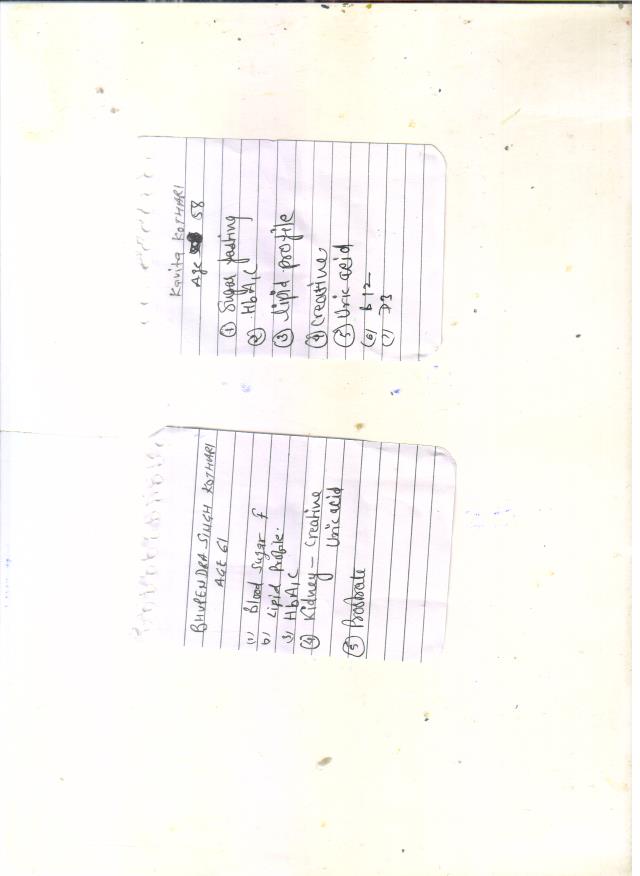 Kavita KOTHARI
Age 58
① Sugar fasting
② HbA1C
③ Lipid profile
④ Creatine
⑤ Uric acid
(6) b12
(7) D3
BHUPENDRA SINGH KOTHARI
AGE 61
(1) Blood Sugar f
b) Lipid Profile.
3) HbA1C
④ Kidney - Creatine
Uric acid
⑤ Prostrate